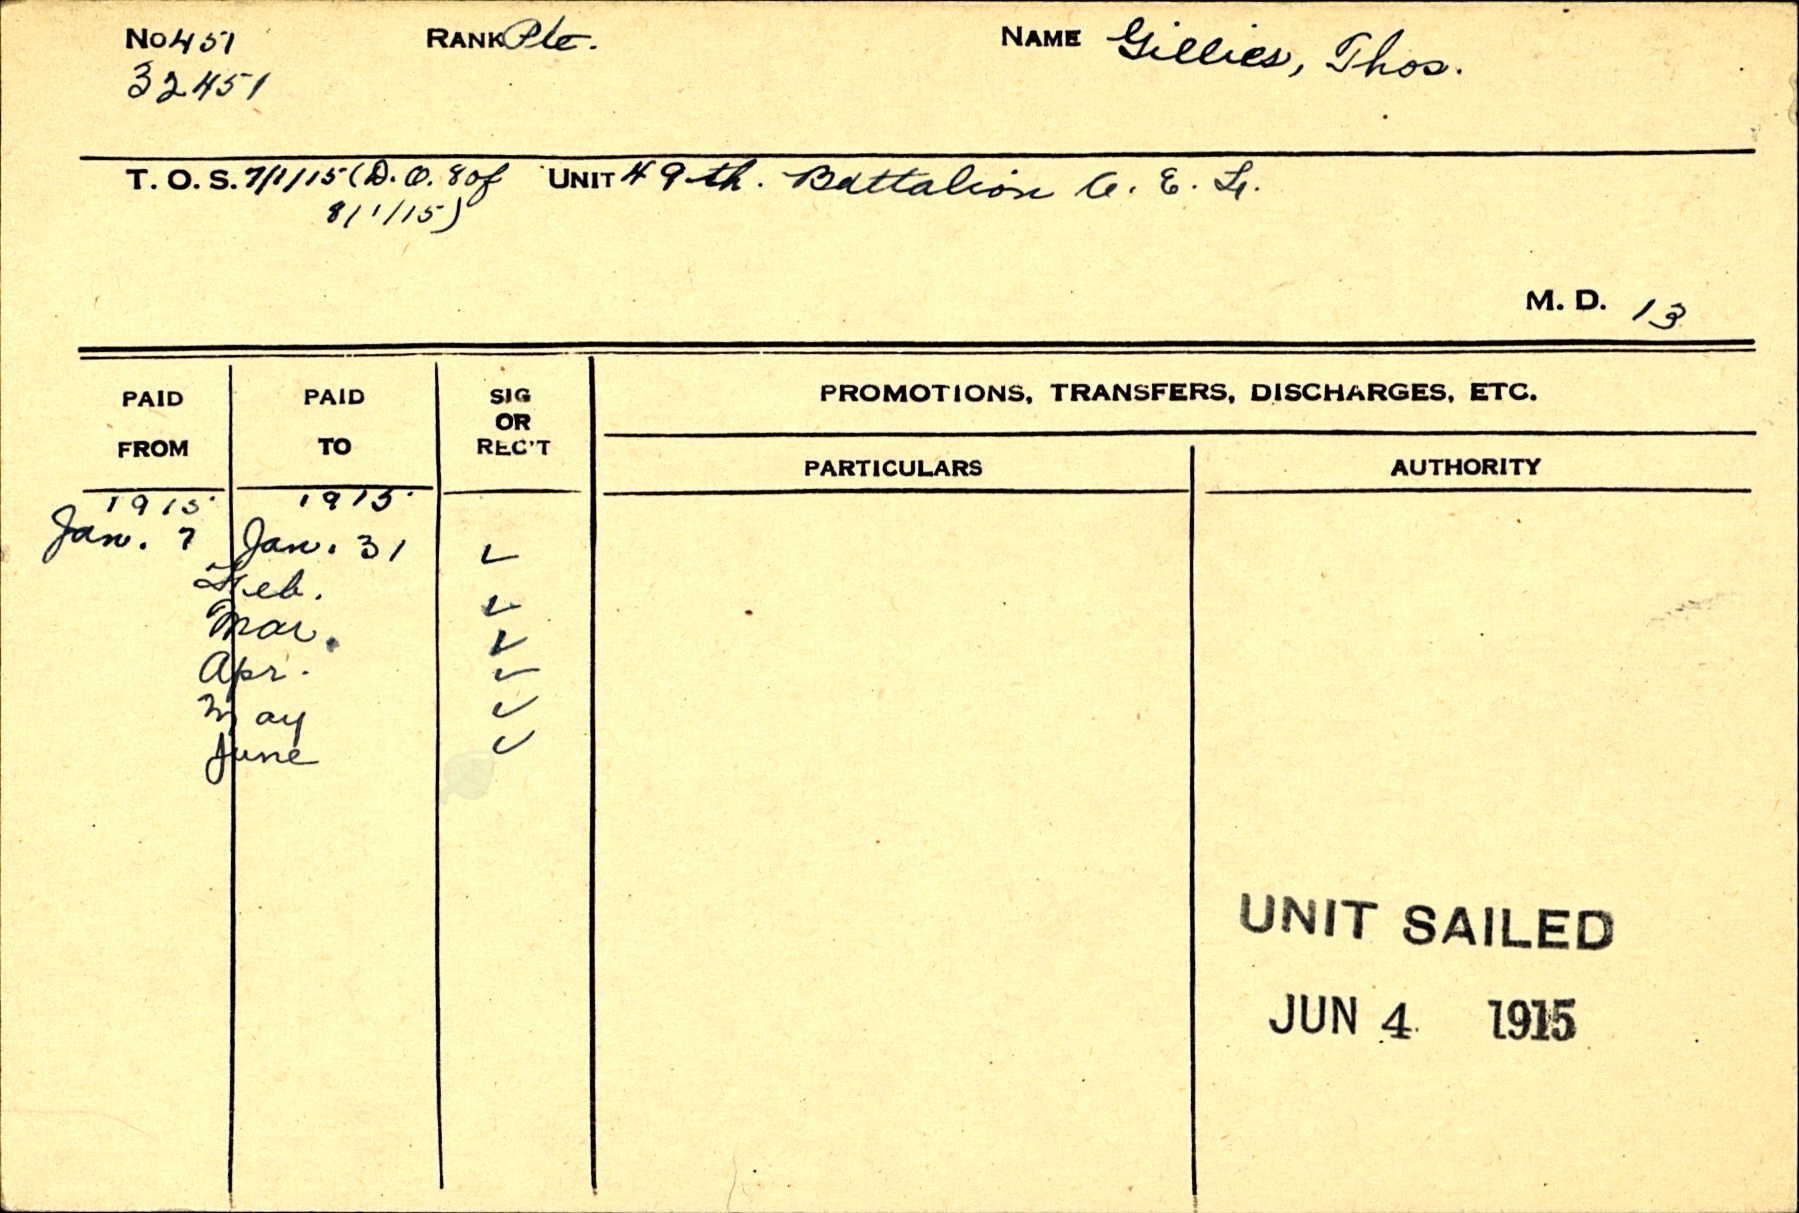 No 451 RANK Pte. NAME Gillies, Thos.
32451
T. O. S. 7/1/15 (D. O. 8 of UNIT 49th. Battalion C. E. F.
8/1/15)
M. D. 13
PAID FROM PAID TO SIG OR REC'T PROMOTIONS, TRANSFERS, DISCHARGES, ETC.
PARTICULARS AUTHORITY
1915 1915
Jan. 7 Jan. 31 ✓
Feb. ✓
Mar. ✓
Apr. ✓
May ✓
June ✓
UNIT SAILED
JUN 4 1915